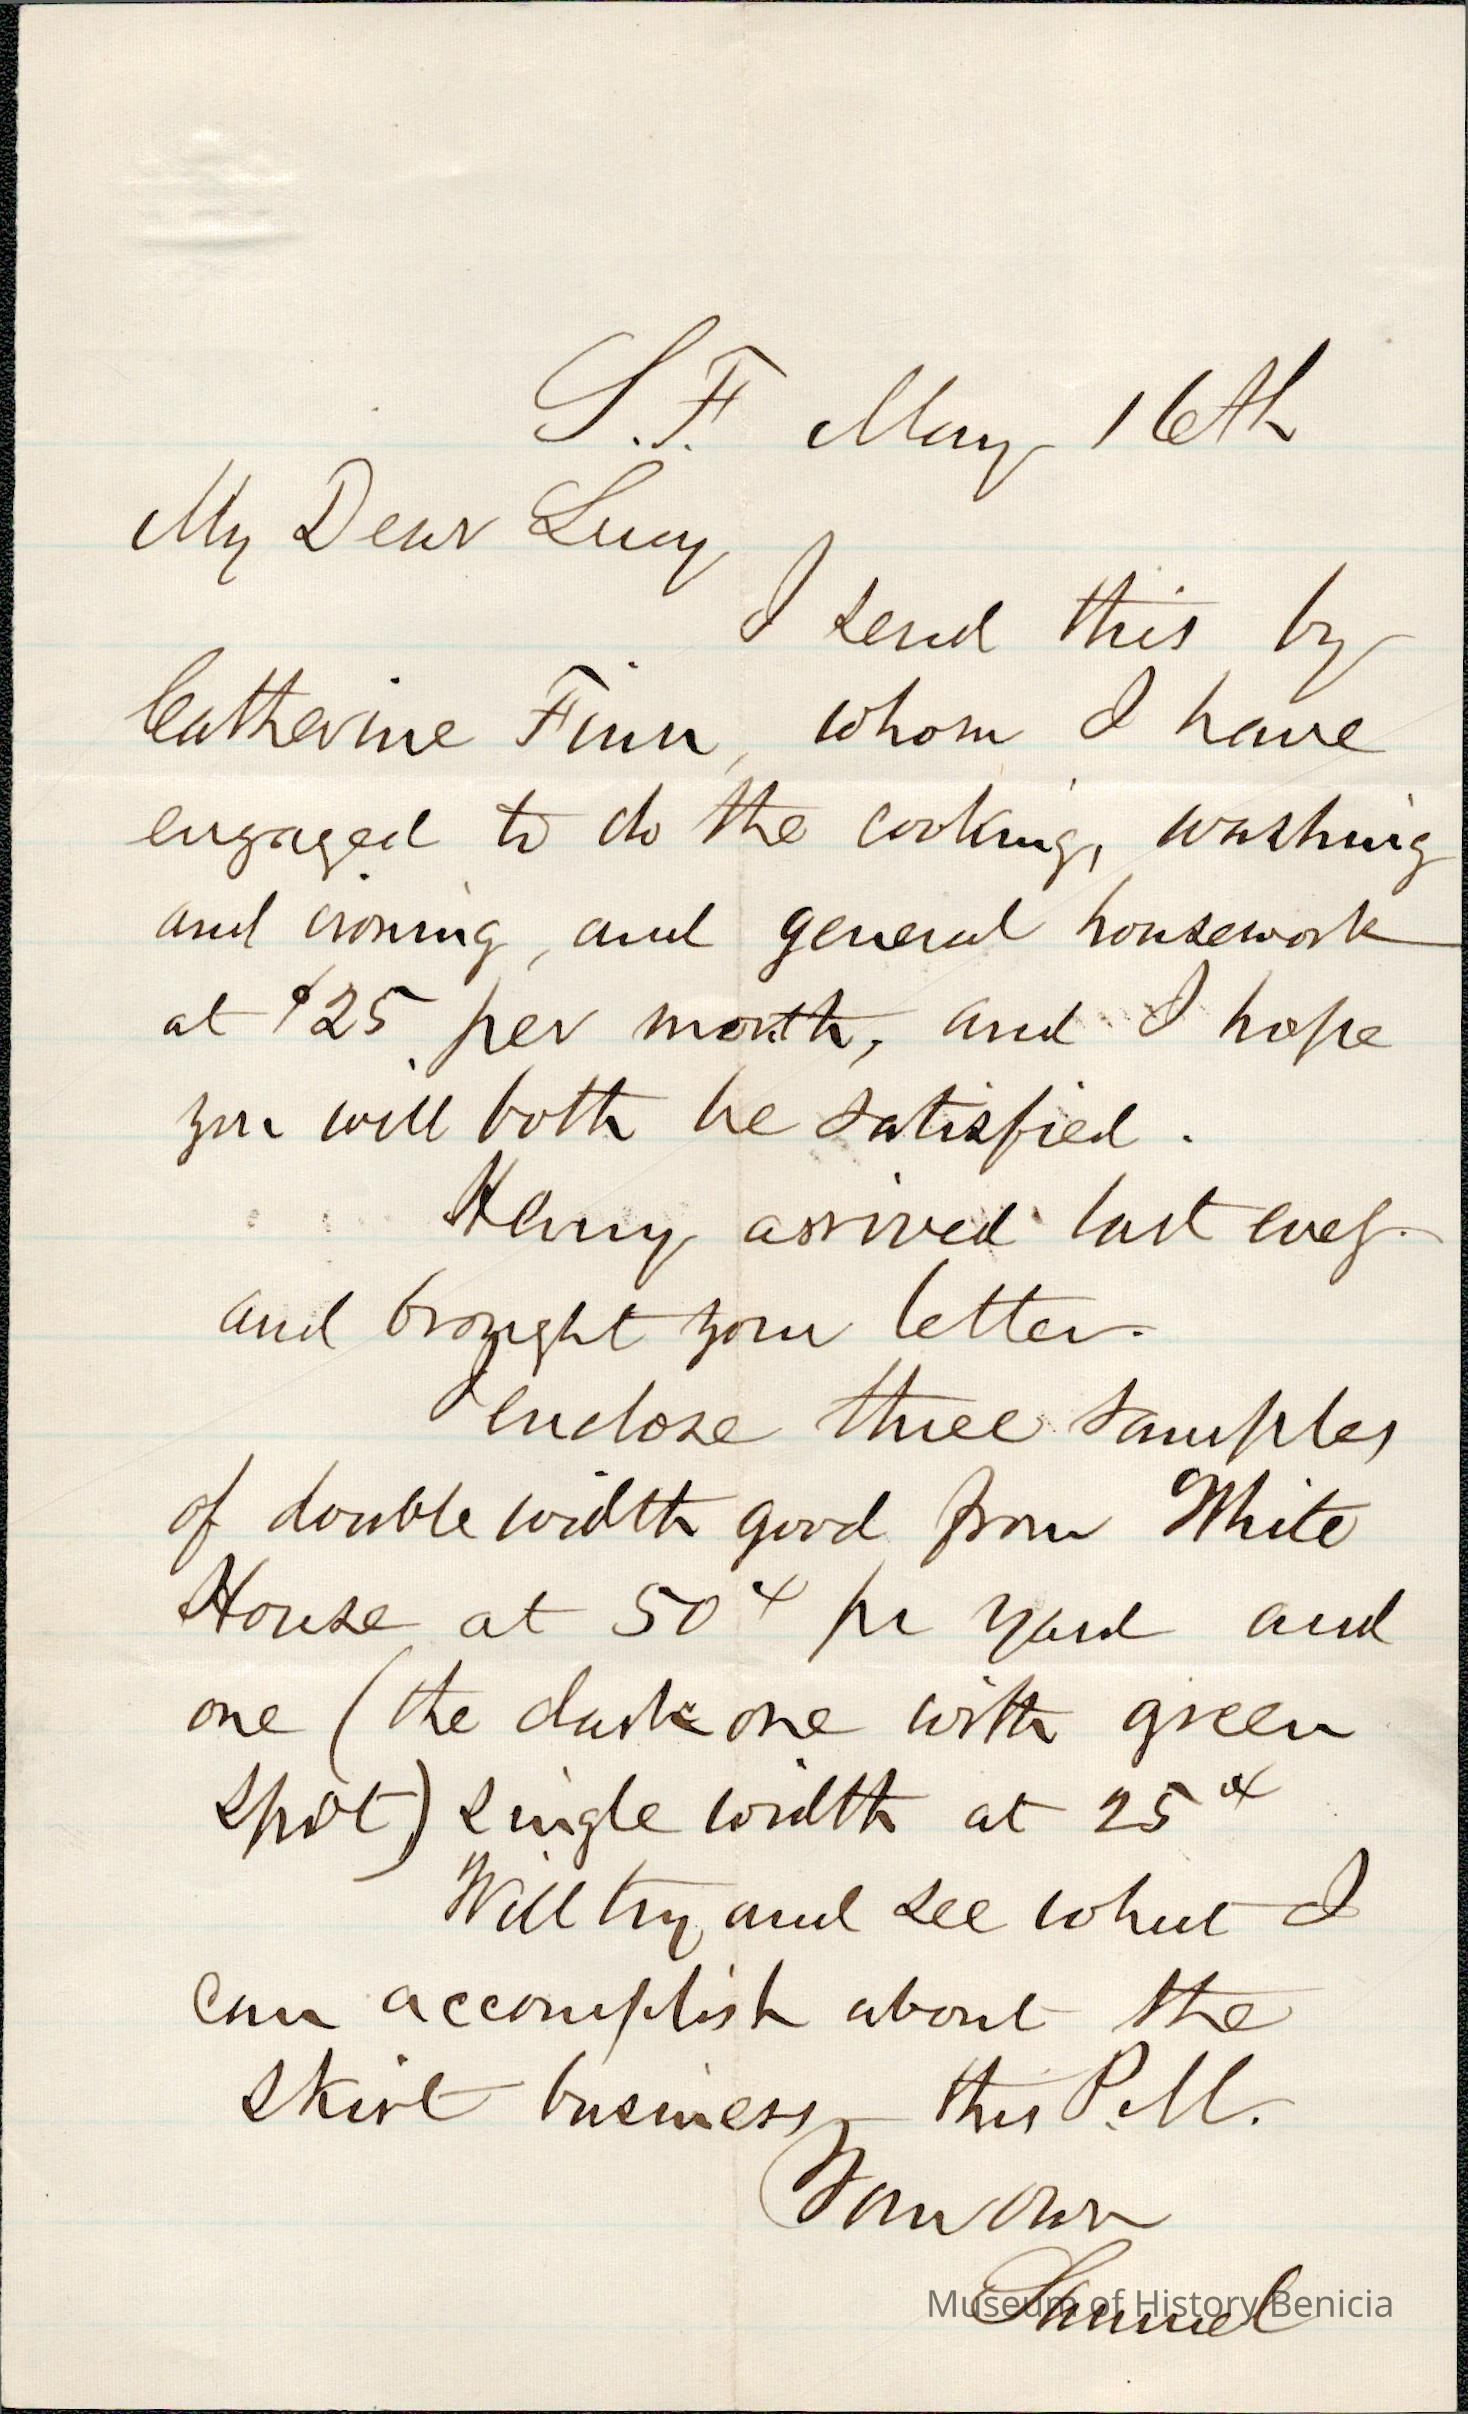 S.F. May 16th
My Dear Lucy
I send this by
Catherine Finn, whom I have
engaged to do the cooking, washing
and ironing, and general housework
at $25 per month, and I hope
you will both be satisfied.
Henry arrived last eveg.
and brought your letter.
I enclose three samples
of double width good from White
House at 50 cts pr yard and
one (the dark one with green
spot) single width at 25 cts
Will try and see what I
can accomplish about the
skirt business this P.M.
Your own
Samuel
Museum of History Benicia